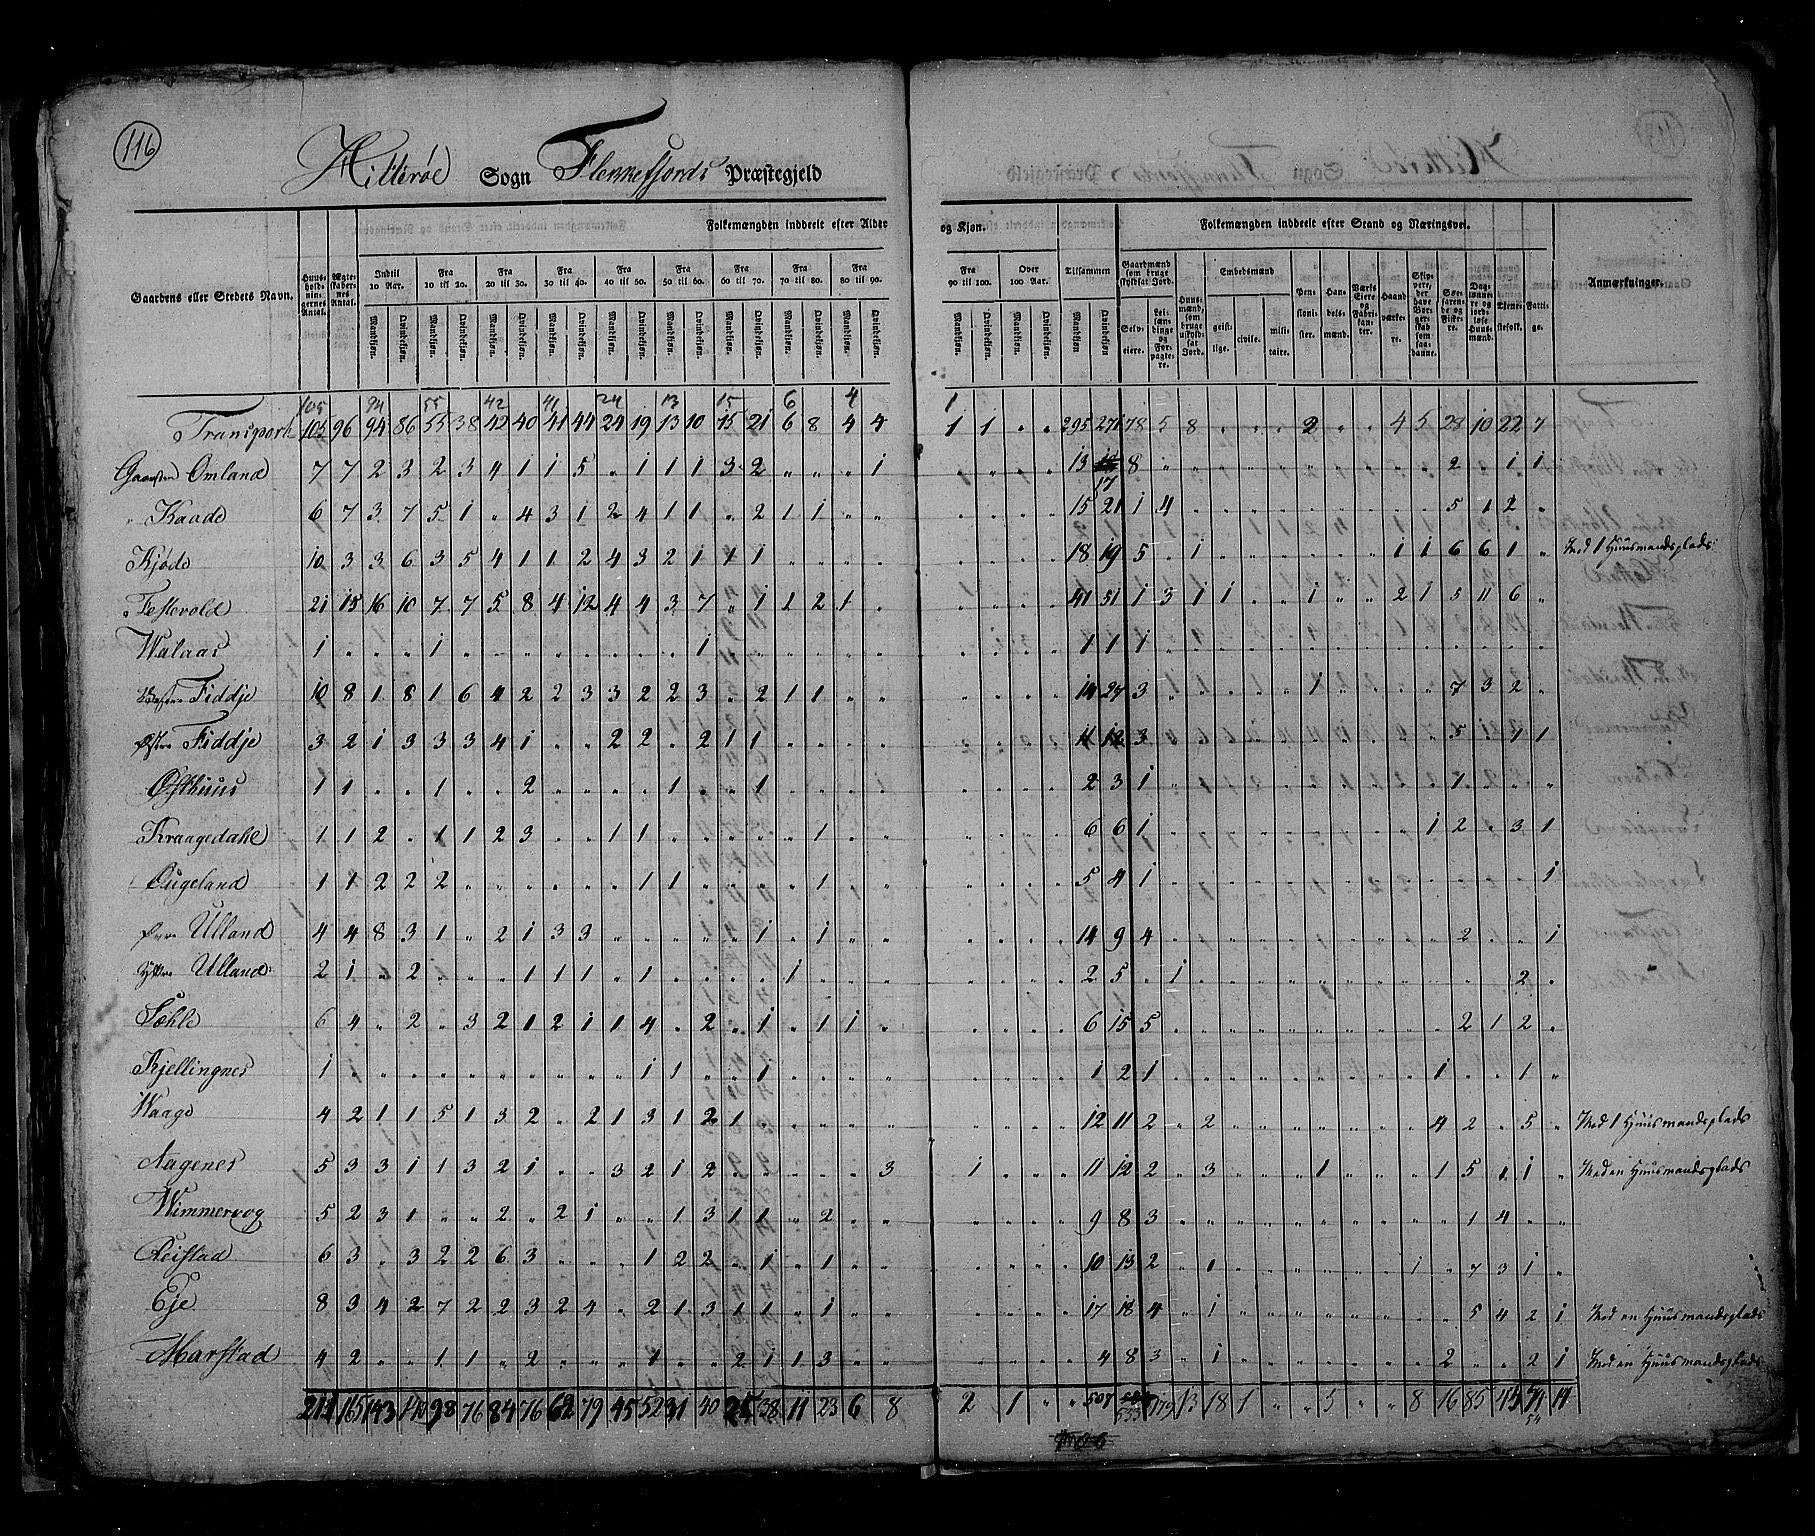 116
Hitterøe Sogn Flekkefjords Præstegjeld
Folkemængden inddeelt efter Alder og Kjøn.
Folkemængden inddeelt efter Stand og Næringsvei.
Gaardens eller Stedets Navn.
Huusholdningernes Antal.
Ægteskabernes Antal.
Indtil 10 Aar.
Fra 10 til 20.
Fra 20 til 30.
Fra 30 til 40.
Fra 40 til 50.
Fra 50 til 60.
Fra 60 til 70.
Fra 70 til 80.
Fra 80 til 90.
Fra 90 til 100.
Over 100 Aar.
Tilsammen
Mandkjøn. Qvindekjøn.
Gaardmænd som bruge skyldsat Jord.
Selveiere.
Leilændinge og Forpagtere.
Huusmænd, som bruge uskyldsat Jord.
Embedsmænd
geistlige. civile. militaire.
Pensionister.
Handelsmænd.
Værks Eiere og Fabrikanter.
Haandværkere.
Skippere, der have Borgerskab som saadanne.
Søefarende og Fiskere.
Daglønnere og jordløse Huusmænd.
Tjenestefolk.
Fattige.
Anmærkninger.
105 94 55 42 41 24 13 15 6 4 1
Transport 105 96 94 86 55 38 42 40 41 44 24 19 13 10 15 21 6 8 4 4 1 1 " " 295 271 78 5 8 " " " 2 " " 4 5 28 10 22 7
Gaarden Omland 7 7 2 3 2 3 4 1 1 5 " 1 1 1 3 2 " " " 1 13 17 8 2 " 1 1
Kaade 6 7 3 7 5 1 " 4 3 1 2 4 1 1 " 2 1 1 " " 15 21 1 4 5 1 2 "
Kjøde 10 3 3 6 3 5 4 1 1 2 4 3 2 1 1 1 18 19 5 " 1 1 1 6 6 1 " Med 1 Huusmandsplads
Festevold 21 15 16 10 7 7 5 8 4 12 4 4 3 7 " 1 1 2 1 " 41 51 1 3 1 1 " " 1 " " 2 1 5 11 6 "
Walaas 1 " " " 1 " " " " " " " " 1 1 1 1
Fiddje 10 8 1 8 1 6 4 2 2 3 3 2 2 3 " 2 1 1 " " 14 27 3 1 7 3 2 "
Østre Fiddje 3 2 1 3 3 3 4 1 " " 2 2 " 2 1 1 11 12 3 5 " 1 1
Østhuus 1 1 " " 1 " " 2 " " " " 1 " " 1 2 3 1 1
Kraagedahl 1 1 2 " 1 1 2 3 " " 1 1 " " " " " 1 6 6 1 1 2 " 3 1
Øugeland 1 1 2 2 2 " " " " " " 1 1 " " " " 1 5 4 1 1
Ulland 4 4 8 3 1 " 2 1 3 3 " " " " " 1 " 1 14 9 4 2 " " 1
Yttre Ulland 2 1 " 2 " " " 1 1 1 " 1 " " " " 1 2 5 " 1 2 "
Sæhle 6 4 " 2 " 3 2 1 2 1 1 4 " 2 " 1 " 1 1 " 6 15 5 2 1 2 "
Kjellingnes 1 " " " " " " " " " " 1 1 " " 1 1 2 1 1 " " 1 "
Waage 4 2 1 1 5 1 3 2 " 2 1 3 1 2 1 12 11 2 " 2 4 2 " 5 " Med 1 Huusmandsplads
Aagenes 5 3 3 1 1 3 2 1 " " 3 2 1 2 " " " " " 3 1 11 12 2 " 3 1 1 5 " 1 " Med en Huusmandsplads
Wimmervog 5 2 3 1 " " 2 " 2 1 " " 1 3 1 1 " 2 " " 9 8 3 1 4 " "
Reistad 6 3 " 3 2 2 6 3 " " " 1 2 2 " 1 " 1 10 13 2 " 1 1 " 7 3 1 "
Eje 8 3 4 2 7 2 2 3 2 4 " 2 1 3 1 1 " 1 17 18 4 " 1 5 4 2 1 Med en Huusmandsplads
Marstad 4 2 " " 1 1 " 2 " " " 1 " " 2 1 1 3 " " 4 8 3 " 1 2 " " 2 1 Med en Huusmandsplads
211 165 143 140 98 76 84 76 62 79 45 52 31 40 25 38 11 23 6 8 2 1 " " 507 533 13 18 1 " " 5 " " 8 16 85 45 74 14
54